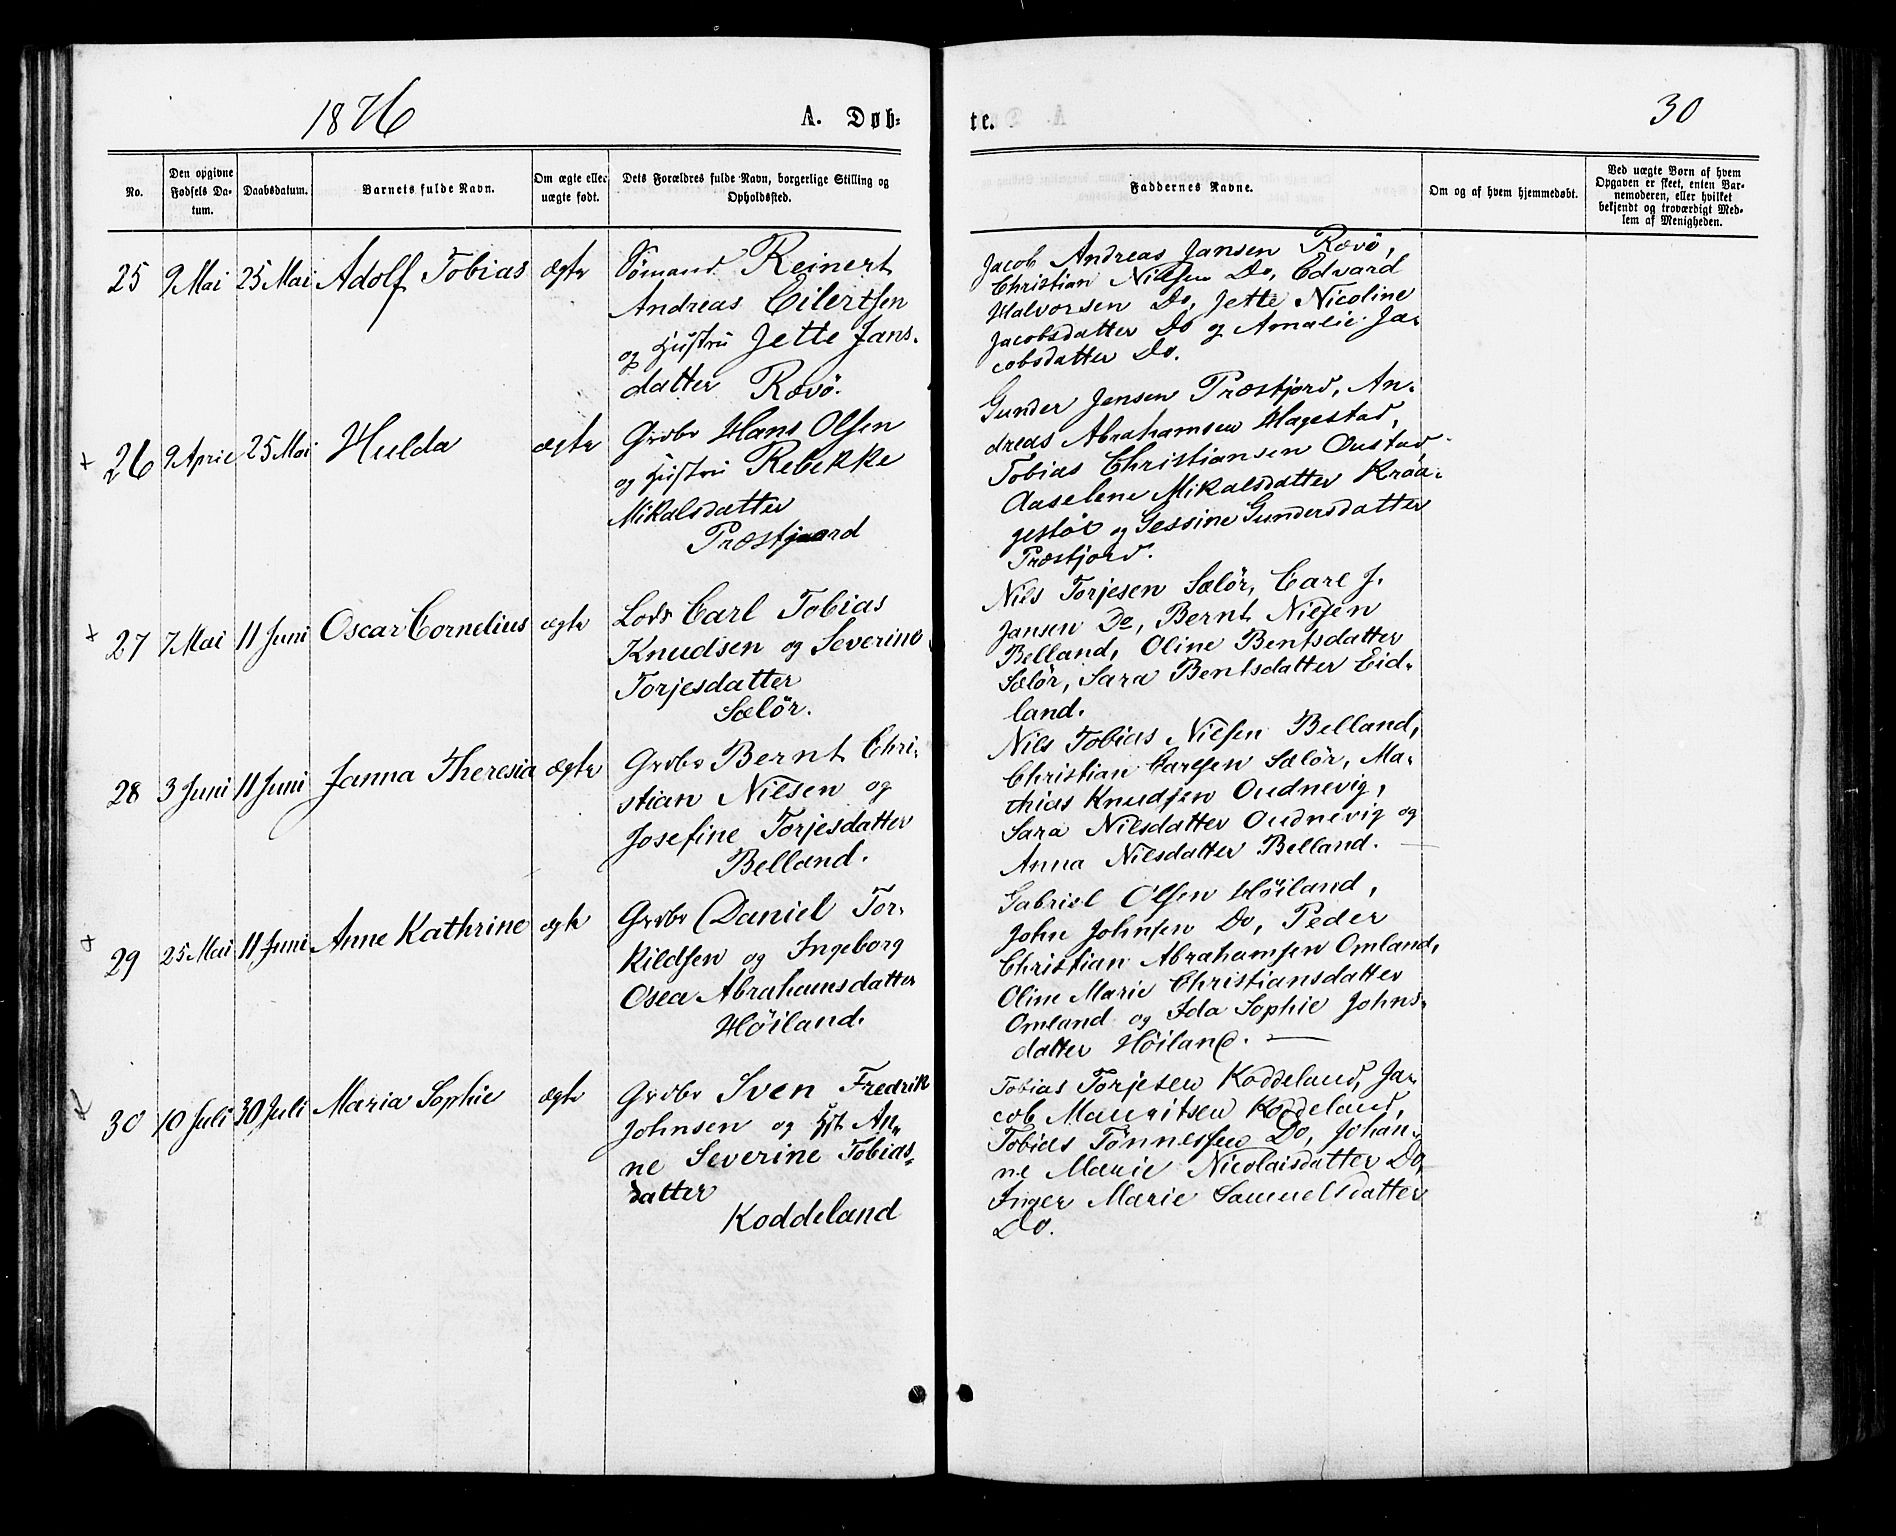 1876
A. Døb-
te.
30
No.
Den opgivne Fødsels Da-
tum.
Daabsdatum.
Barnets fulde Navn.
Om ægte eller
uægte født.
Dets Forældres fulde Navn, borgerlige Stilling og
Opholdssted.
Faddernes Navne.
Om og af hvem hjemmedøbt.
Ved uægte Børn af hvem
Opgaven er skeet, enten Bar-
nemoderen, eller hvilket
bekjendt og troværdigt Med-
lem af Menigheden.
25 9 Mai 25 Mai Adolf Tobias ægte
Sömand Reinert
Andreas Eilertsen
og Hustru Jette Jans-
datter Rævö.
Jacob Andreas Jansen Rævö,
Christian Nilsen Do, Edvard
Halvorsen Do, Jette Nicoline
Jacobsdatter Do og Amalie Ja-
cobsdatter Do.
+ 26 9 April 25 Mai Hulda ægte
Grdbr Hans Olsen
og Hustru Rebekke
Mikalsdatter
Præstjaard
Gunder Jensen Præstjord, An-
dreas Abrahamsen Hagestad,
Tobias Christiansen Oustad
Aaselene Mikalsdatter Kraa-
gestöl og Gessine Gundersdatter
Præstjord.
+ 27 7 Mai 11 Juni Oscar Cornelius ægte
Lods Carl Tobias
Knudsen og Severine
Torjesdatter
Sælör.
Nils Torjesen Sælör, Carl J.
Jansen Do, Bernt Nielsen
Belland, Oline Bentsdatter
Sælör, Sara Bentsdatter Eid-
land.
28 3 Juni 11 Juni Janna Theresia ægte
Grdbr Bernt Chri-
stian Nilsen og
Josefine Torjesdatter
Belland.
Nils Tobias Nilsen Belland,
Christian Carlsen Sælör, Ma-
thias Knudsen Oudnevig,
Sara Nilsdatter Oudnevig og
Anna Nilsdatter Belland.
+ 29 25 Mai 11 Juni Anne Kathrine ægte
Grdbr Daniel Tor-
kildsen og Ingeborg
Osea Abrahamsdatter
Höiland.
Gabriel Olsen Höiland,
John Johnsen Do, Peder
Christian Abrahamsen Omland,
Oline Marie Christiansdatter
Omland og Ida Sophie Johns-
datter Höiland.
30 10 Juli 30 Juli Maria Sophie ægte
Grdbr Sven Fredrik
Johnsen og Hst An-
ne Severine Tobias-
datter
Koddeland
Tobias Torjesen Koddeland, Ja-
cob Mauritsen Koddeland,
Tobias Tönnessen Do, Johan-
ne Marie Nicolaisdatter Do,
Inger Marie Samuelsdatter
Do.